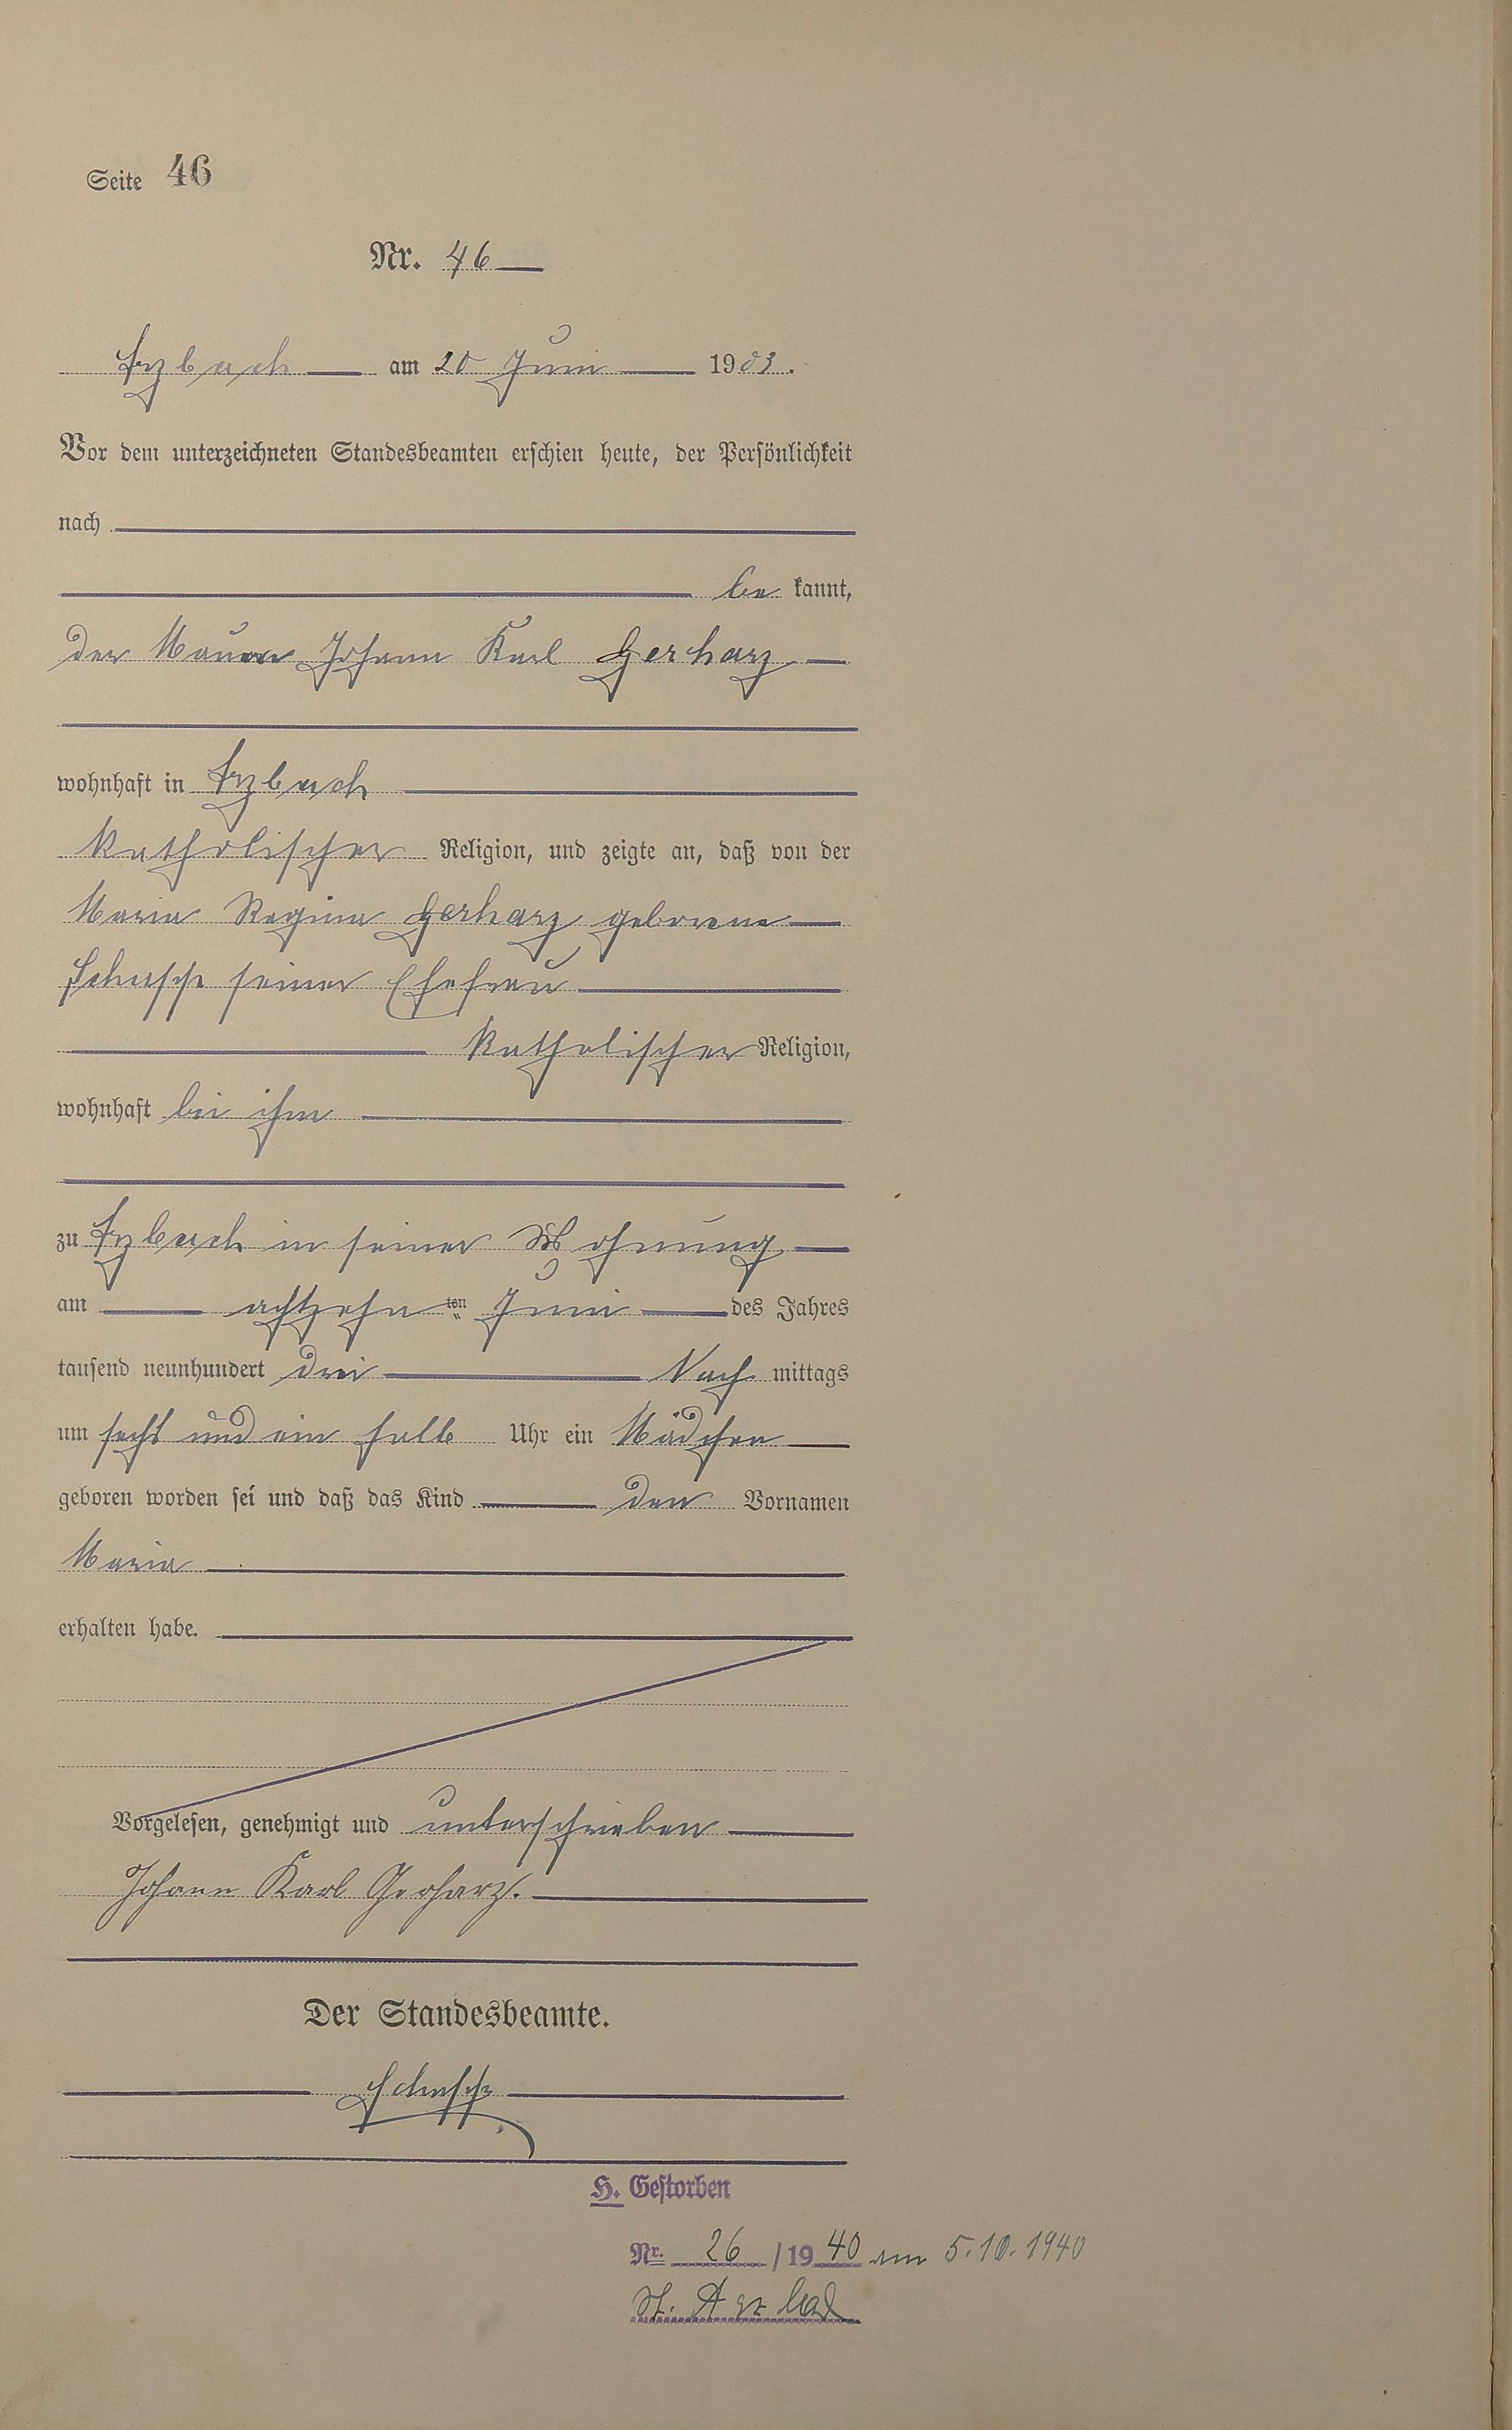 Seite 46
Nr. 46
Arzbach am 20 Juni 1903.
Vor dem unterzeichneten Standesbeamten erschien heute, der Persönlichkeit
nach
be kannt,
der Maurer Johann Karl Gerharz
wohnhaft in Arzbach
katholischer Religion, und zeigte an, daß von der
Maria Regina Gerharz geborene
seiner Ehefrau
katholischer Religion,
wohnhaft bei ihm
zu Arzbach in seiner Wohnung
am achtzehnten Juni des Jahres
tausend neunhundert drei Nach mittags
um sechs und ein halb Uhr ein Mädchen
geboren worden sei und daß das Kind den Vornamen
Maria
erhalten habe.
Vorgelesen, genehmigt und unterschrieben
Johann Karl Gerharz.
Der Standesbeamte.
H. Gestorben
Nr. 26 / 19 40 am 5.10.1940
St. A